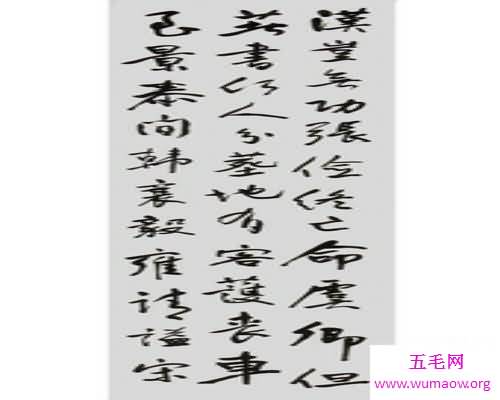 漢無功張儉終亡命虞卿但
著書何人分墓地有客護喪車
景泰間韓襄毅雍請謚宋
五毛网
www.wumaow.org